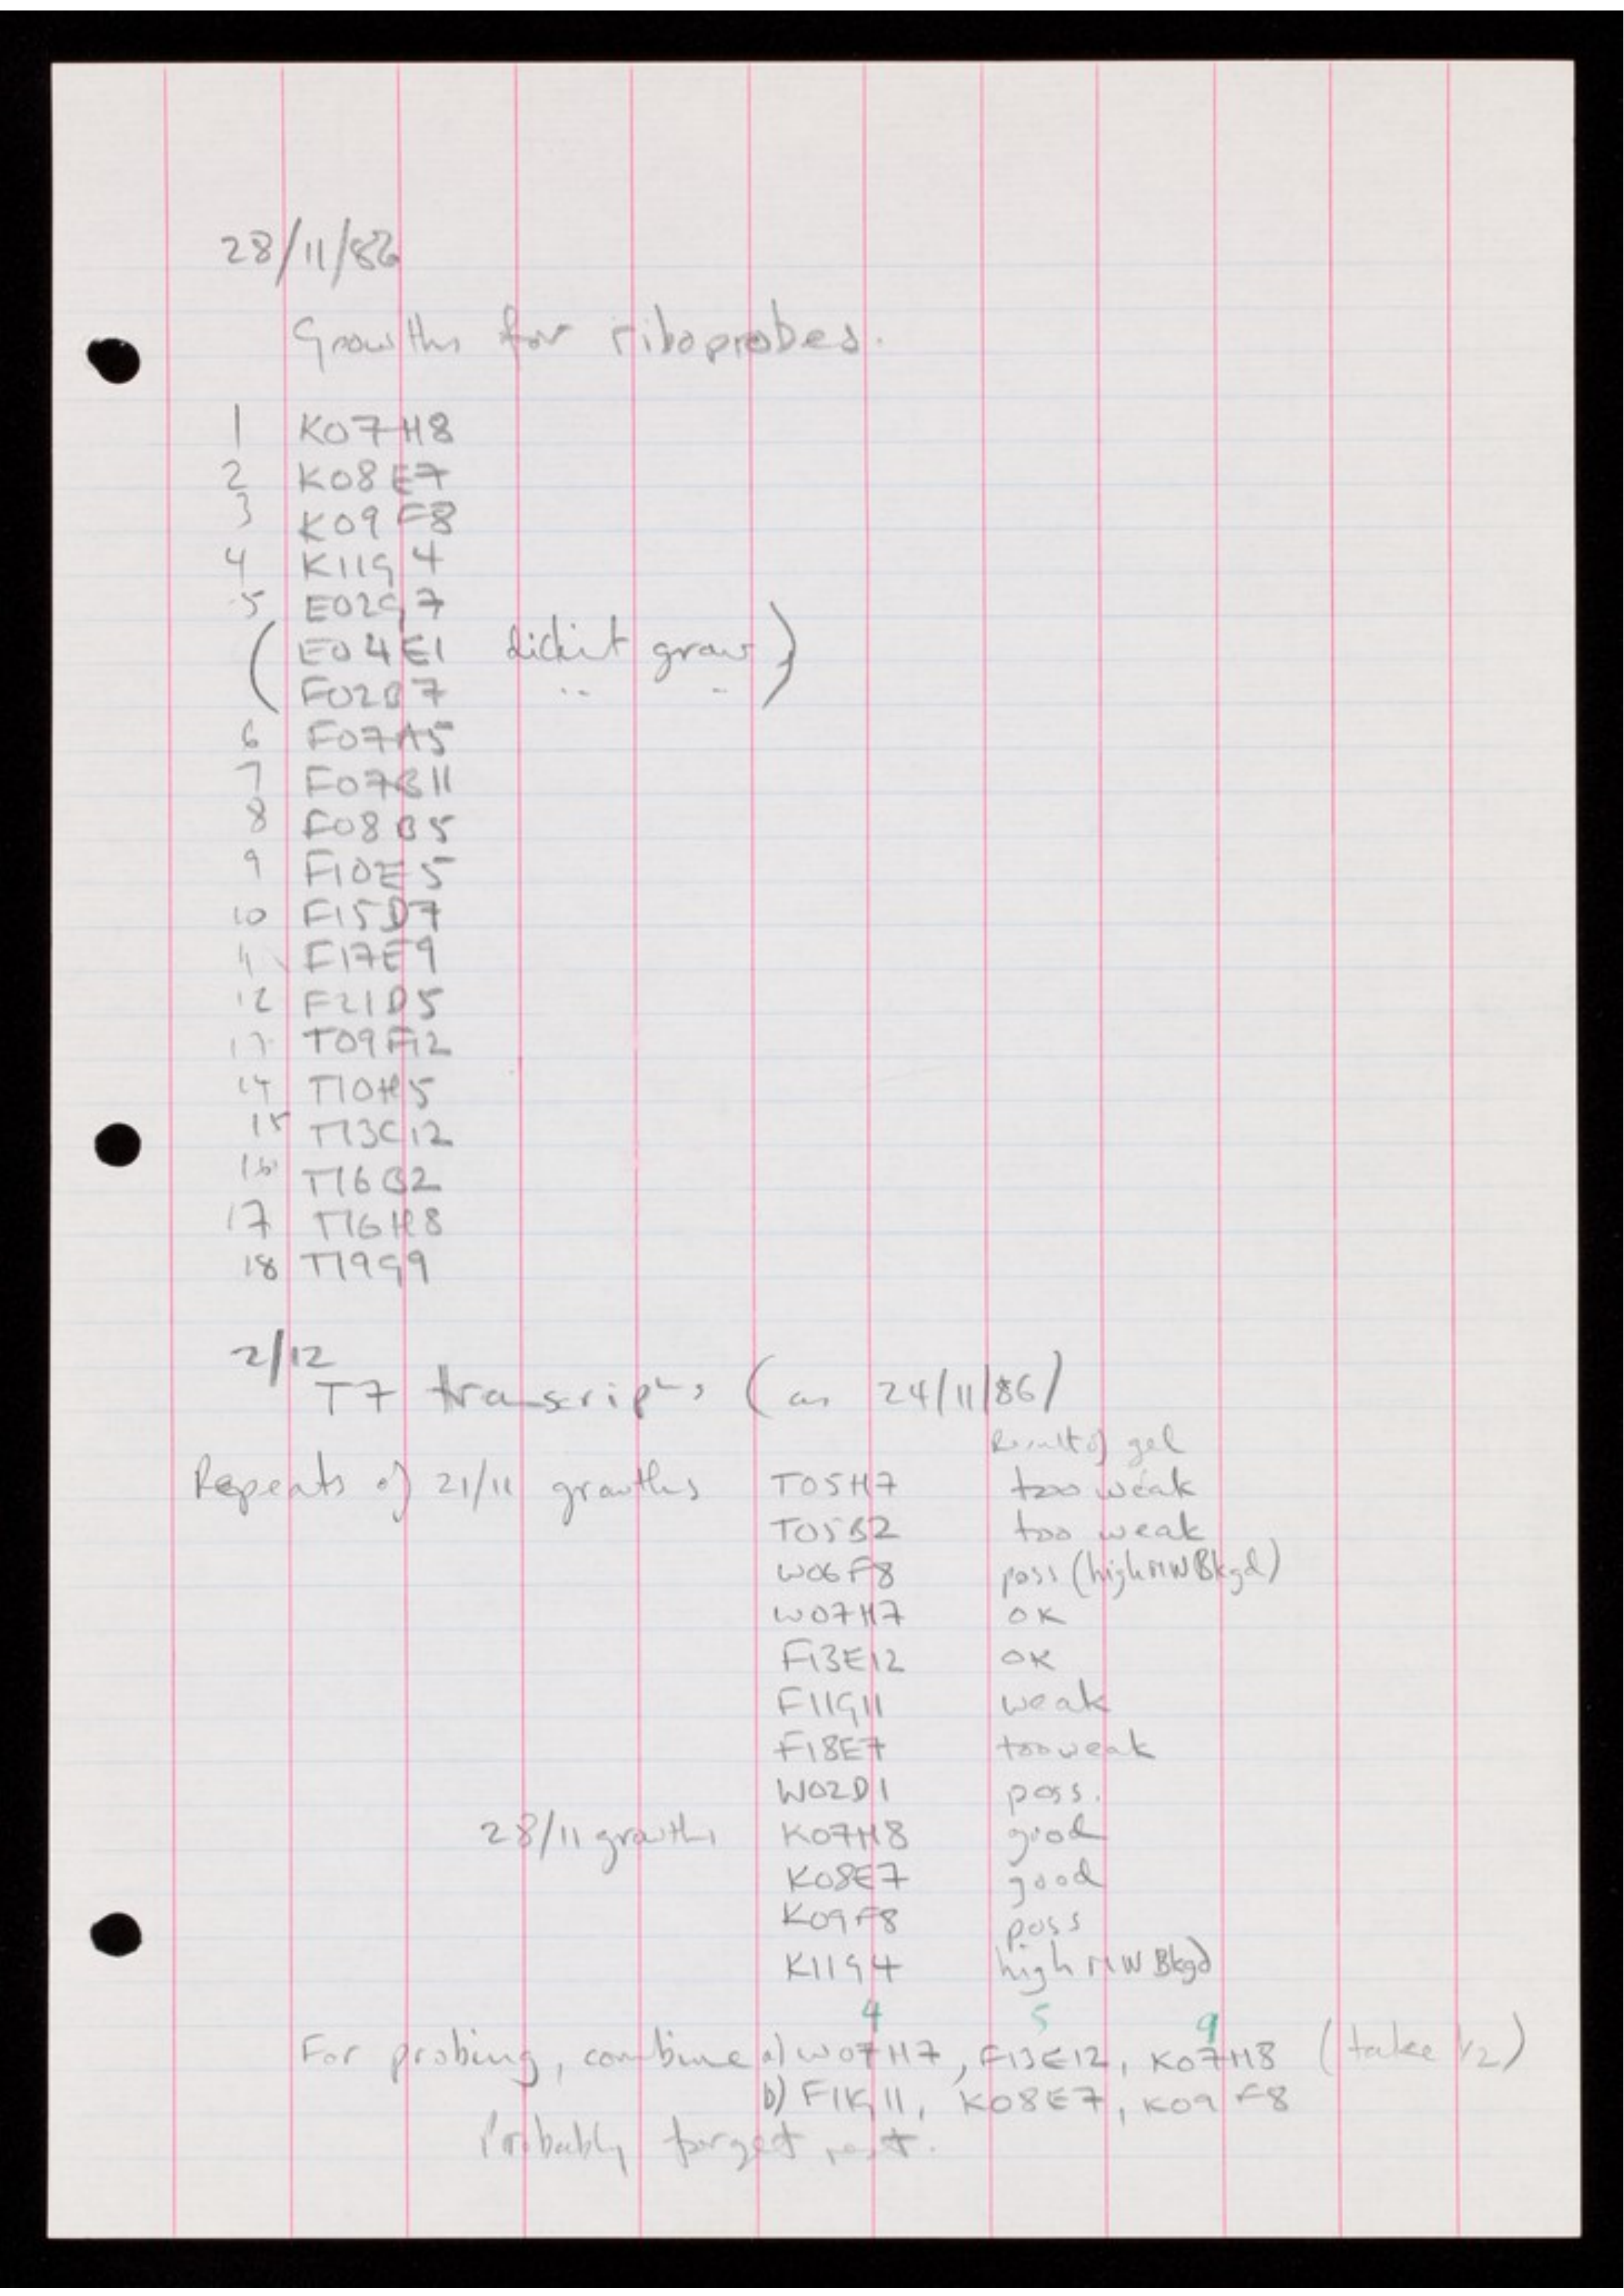 28/11/86
Growths for riboprobes.
1 K07H8
2 K08E7
3 K09F8
4 K11G4
5 E02G7
( E04E1 didn't grow )
F02B7 " "
6 F07A5
7 F07B11
8 F08B5
9 F10E5
10 F15D7
11 F17E9
12 F21D5
13 T09F12
14 T10H5
15 T13C12
16 T16B2
17 T16H8
18 T19G9
2/12
T7 transcripts (as 24/11/86)
Result of gel
Repeats of 21/11 growths T05H7 too weak
T05B2 too weak
W06F8 poss (high MW Bkgd)
W07H7 OK
F13E12 OK
F11G11 weak
F18E7 too weak
W02D1 poss.
28/11 growths K07H8 good
K08E7 good
K09F8 poss
K11G4 high MW Bkgd
4 5 9
For probing, combine a) W07H7, F13E12, K07H8 (take 1/2)
b) F11G11, K08E7, K09F8
Probably forget rest.